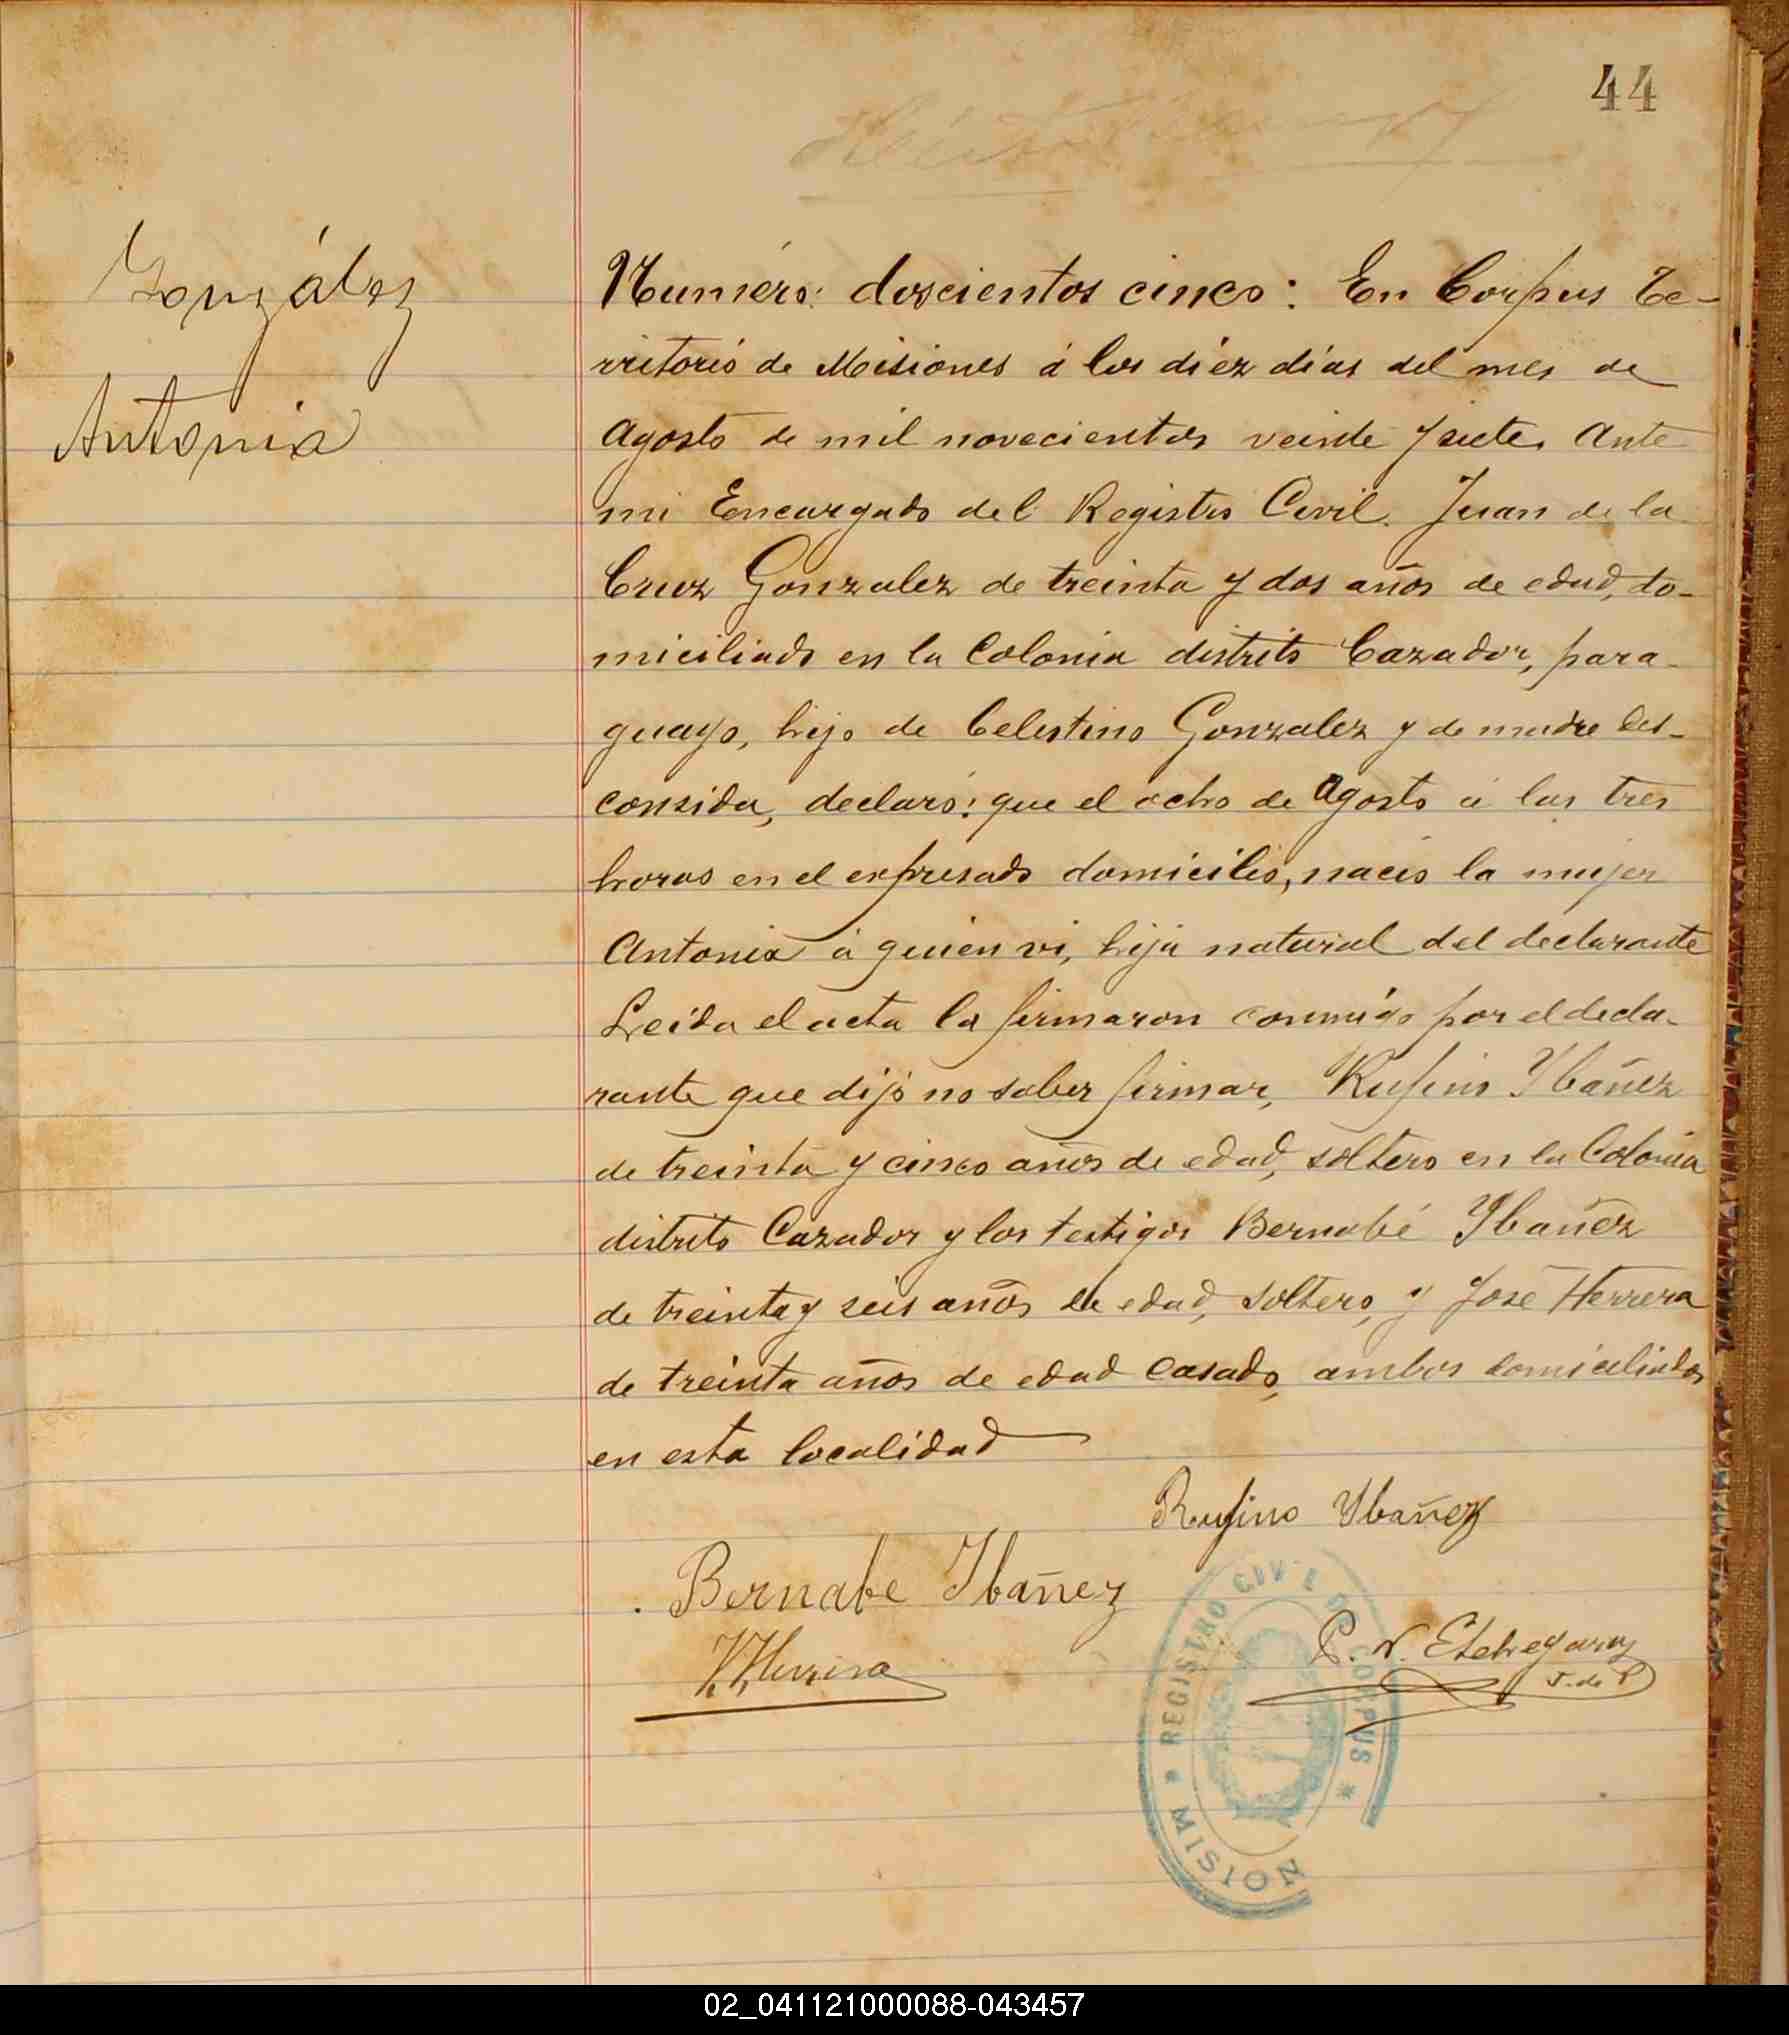 44
González
Antonia
Numéro: doscientos cinco: En Corpus Te-
rritorio de Misiones á los diéz días del mes de
Agosto de mil novecientos veinte y siete, Ante
mi Encargado del Registro Civil. Juan de la
Cruz Gonzalez de treinta y dos años de edad, do-
miciliado en la Colonia distrito Cazador, para-
guayo, hijo de Celestino Gonzalez y de madre des-
consida, declaró: que el ocho de Agosto á las tres
horas en el expresado domicilio, nació la mujer
Antonia á quien vi, hija natural del declarante
Leida el acta la firmaron conmigo por el decla-
rante que dijo no saber firmar, Rufino Ybañez
de treinta y cinco años de edad, soltero en la Colonia
distrito Cazador y los testigos Bernabé Ybañez
de treinta y seis años de edad, soltero, y José Herrera
de treinta años de edad casado, ambos domiciliados
en esta localidad
Rufino Ybañez
Bernabe Ibáñez
Herrera
P. N. Etchegaray
J. de P
REGISTRO CIVIL DE CORPUS * MISION
02_041121000088-043457